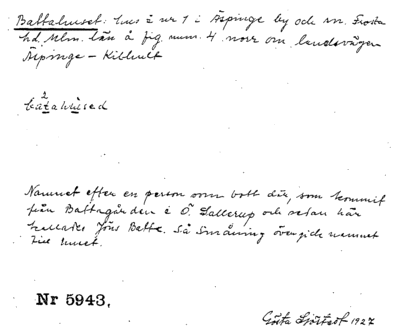 Battahuset: hus å nr 1 i Äspinge by och sn. Frosta
hd. Mlm. län å fig. num. 4. norr om landsvägen
Äspinge - Kibhult
Namnet efter en person som bott där, som kommit
från Battagården i Ö. Sallerup och sedan här
kallades Jöns Batte. Så småning övergick namnet
till huset.
Nr 5943,
Gösta Sjöstedt 1927